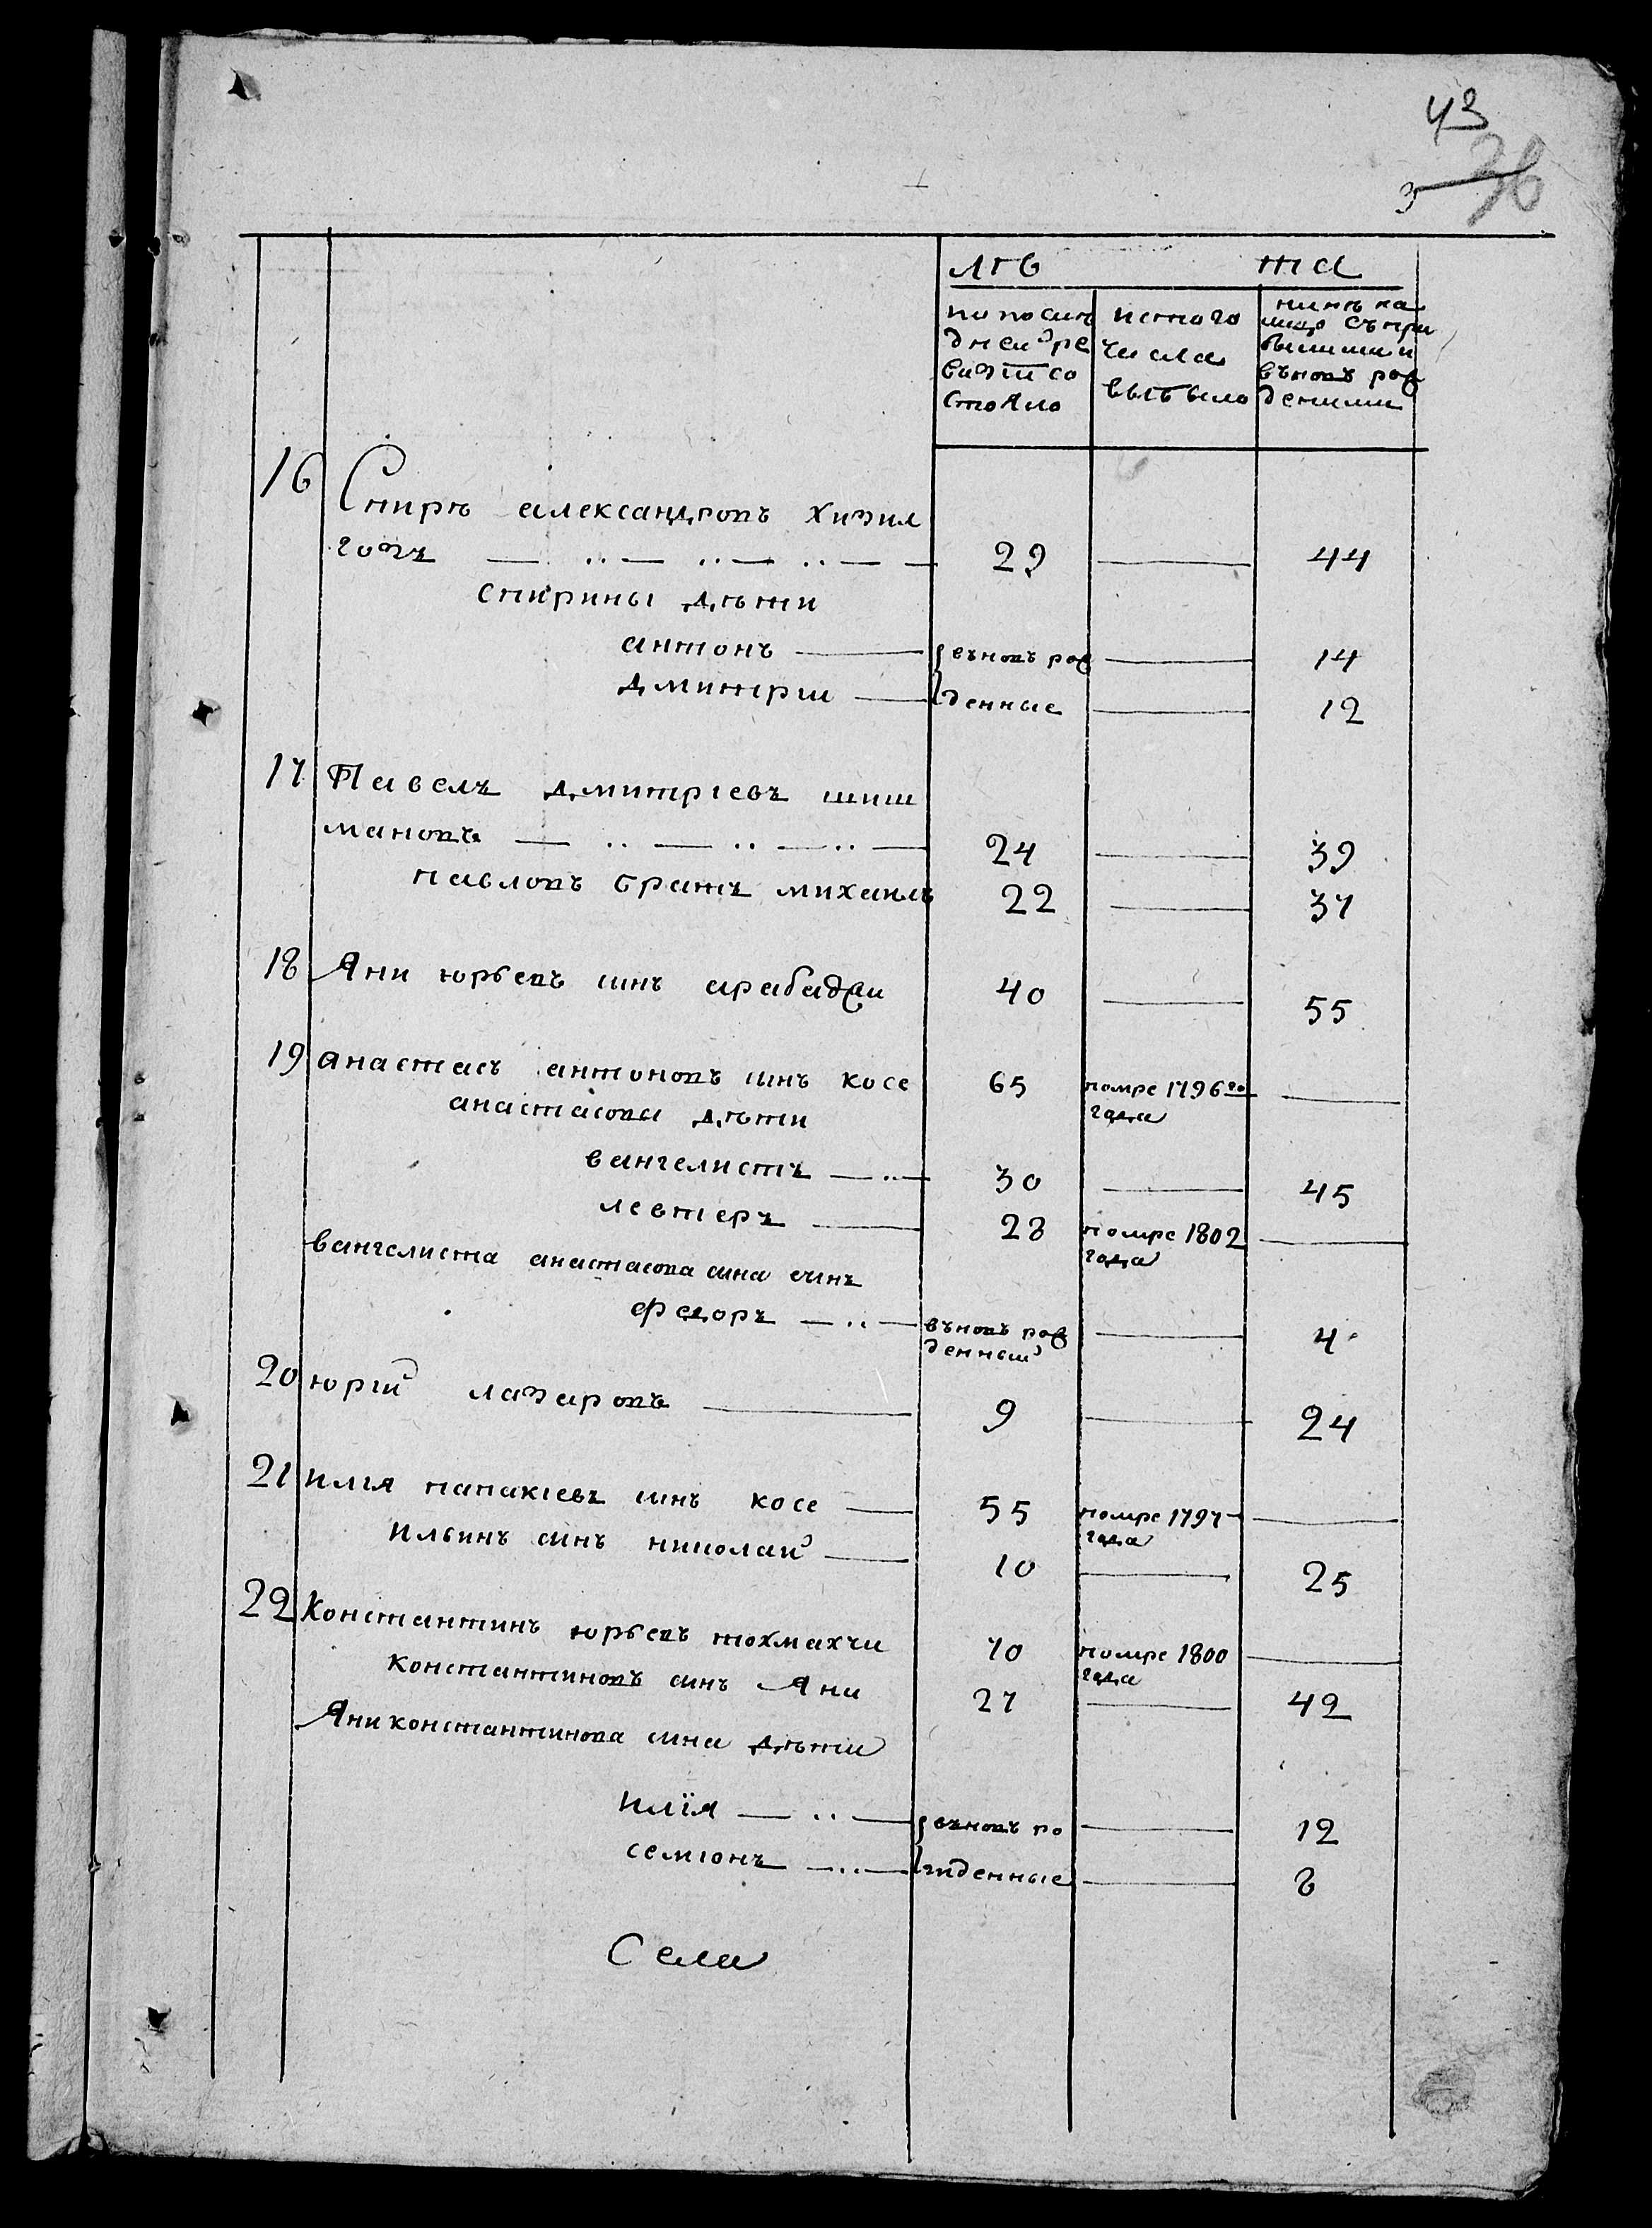 43
36
лѣ та
по посли
дней ре
визіи со
стояло
ис того
числа
выбыло
нинѣ на
лицо съ при
былими и
вьновъ рож
деними
16 Спиръ александровъ хизил
гозъ 29 44
спирины дѣти
антонъ вьновъ рож 14
дмитрии денные 12
17 Павелъ дмитріевъ шиш
мановъ 24 39
павловъ братъ михаилъ 22 37
18 Яни юрьевъ синъ арабаджи 40 55
19 анастасъ антоновъ синъ косе 65 помре 1796го
года
анастасовы дѣти
вангелистъ 30 45
левтеръ 28 помре 1802
года
вангелиста анастасова сина синъ
федоръ вьновъ рож 4
денный
20 юрій лазаровъ 9 24
21 илія папакіевъ синъ косе 55 помре 1797
года
Ильинъ синъ николай 10 25
22 Константинъ юрьевъ тохмахчи 70 помре 1800
года
константиновъ синъ Яни 27 42
Яни константинова сина дѣти
илїя вьновъ ро 12
семіонъ жденные 8
Села